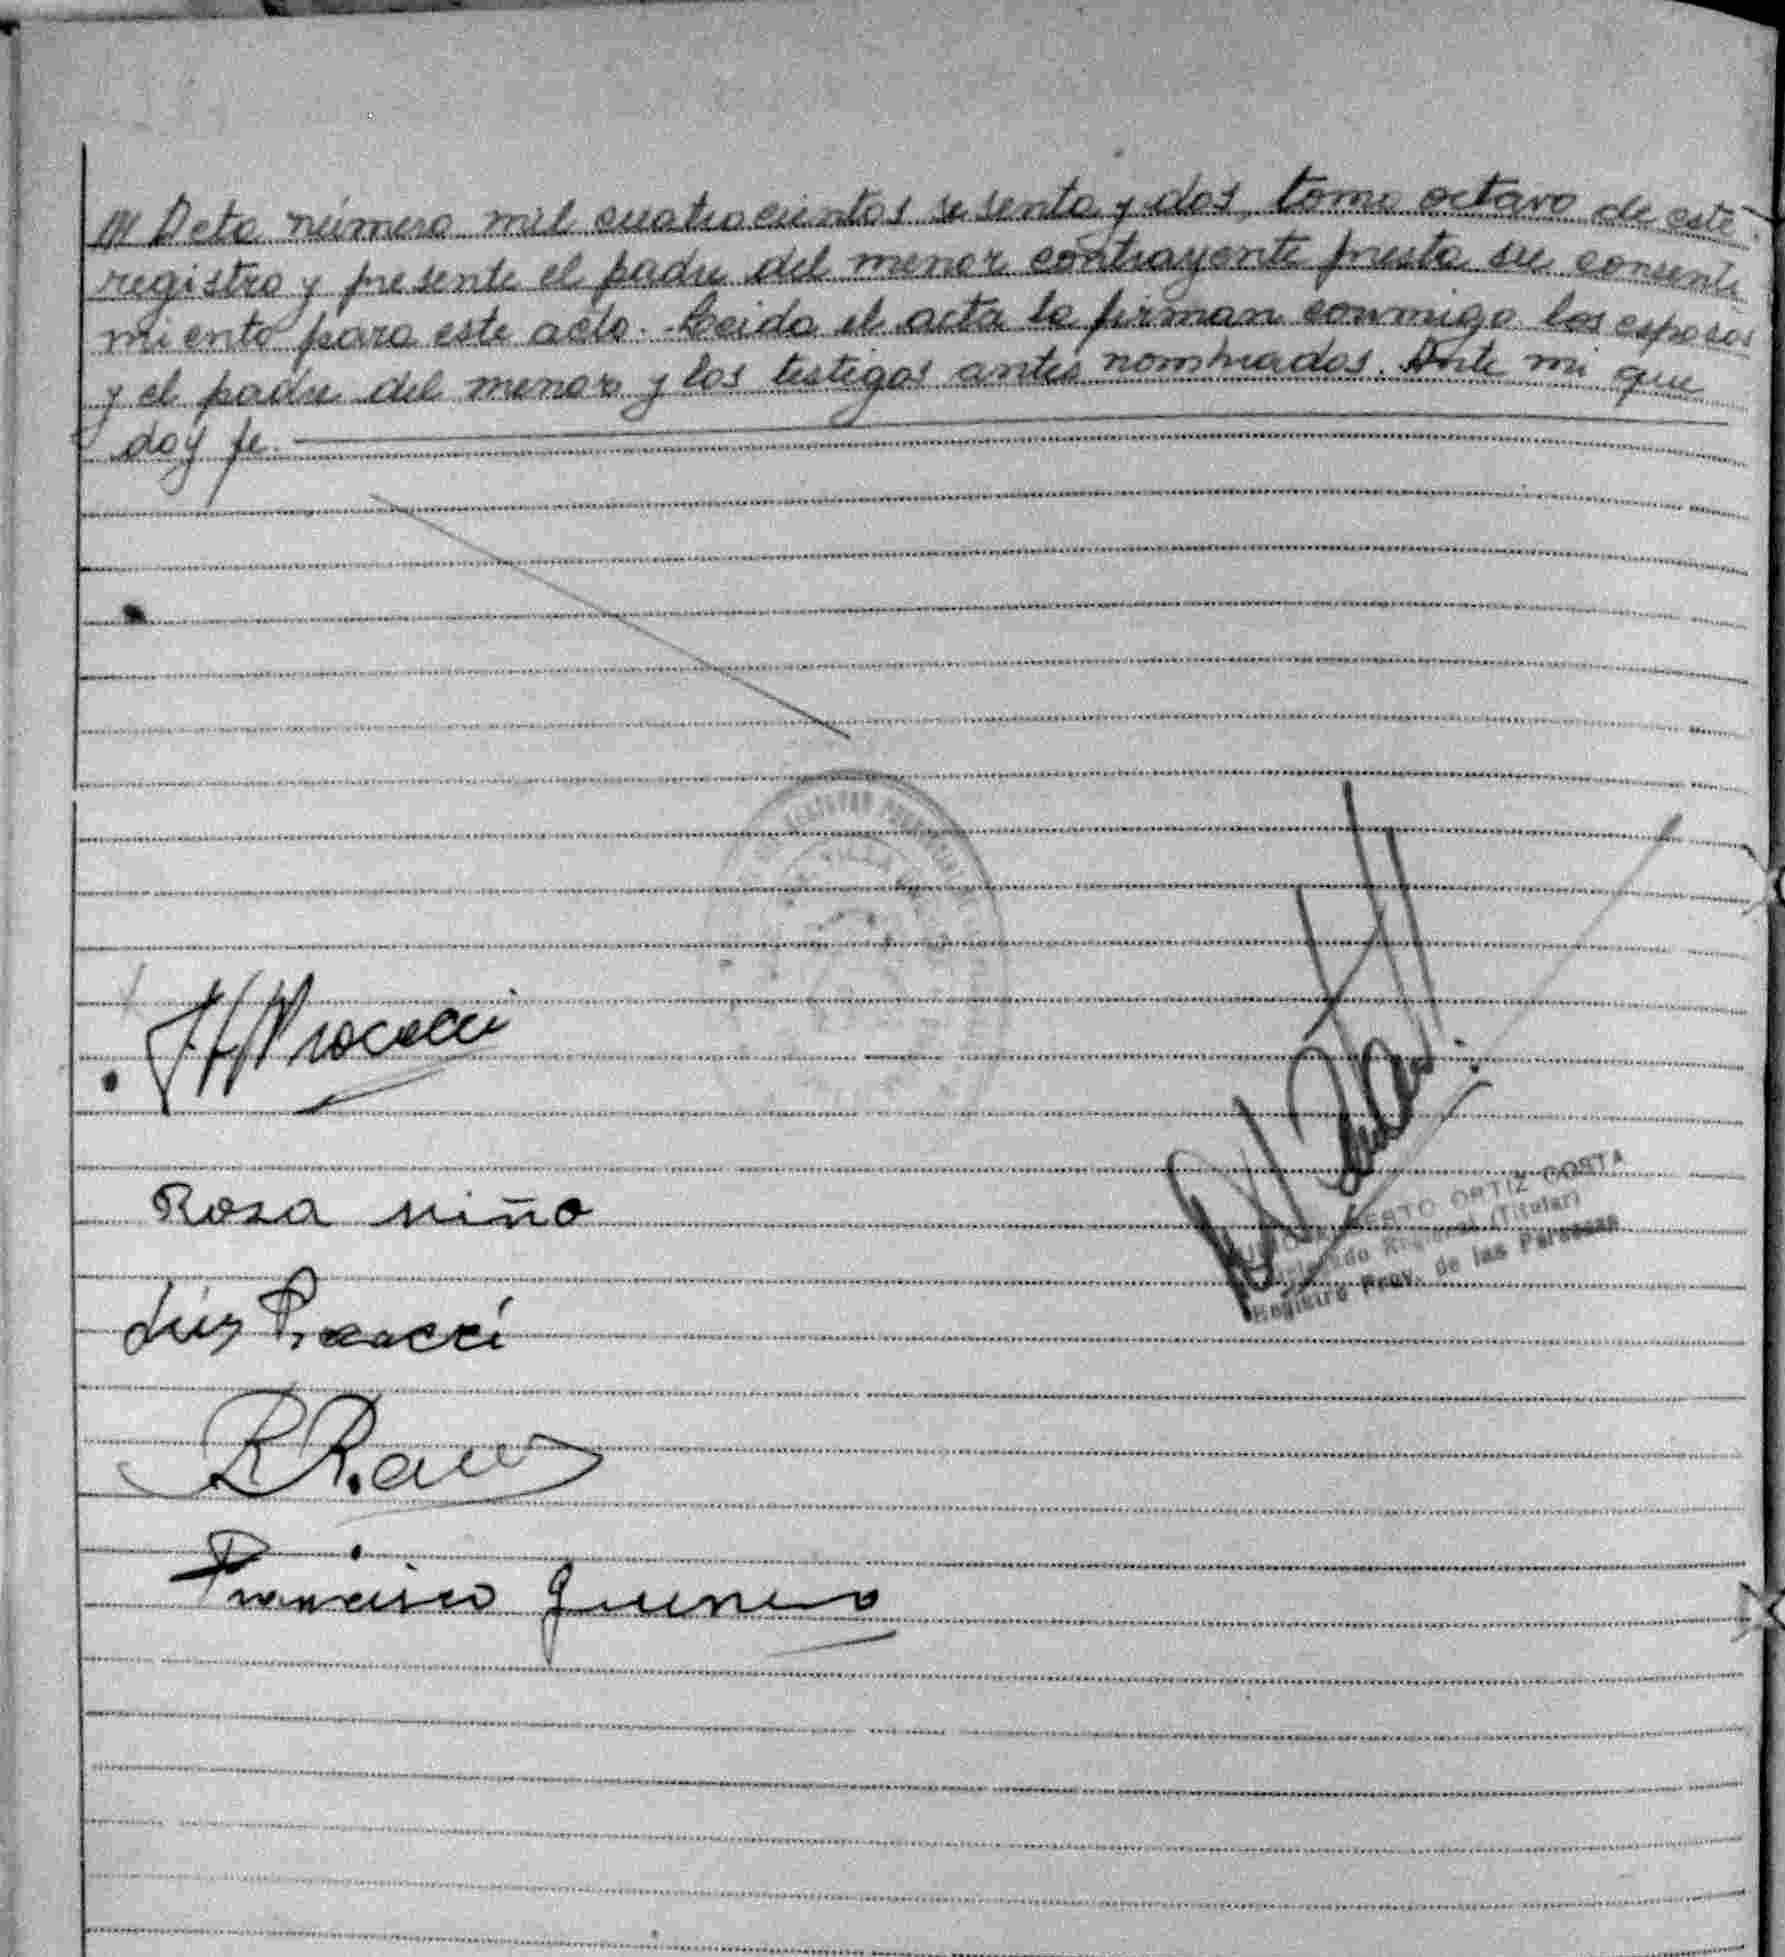 /// Acta número mil cuatrocientos sesenta y dos, tomo octavo de este
registro y presente el padre del menor contrayente presta su consenti
miento para este acto. Leida el acta la firman conmigo los esposos
y el padre del menor y los testigos antes nombrados. Ante mi que
doy fe.
Procacci
Rosa Niño
Luis Procacci
Francisco Guerrero
ORTIZ COSTA
(Titular)
Registro Prov. de las Personas